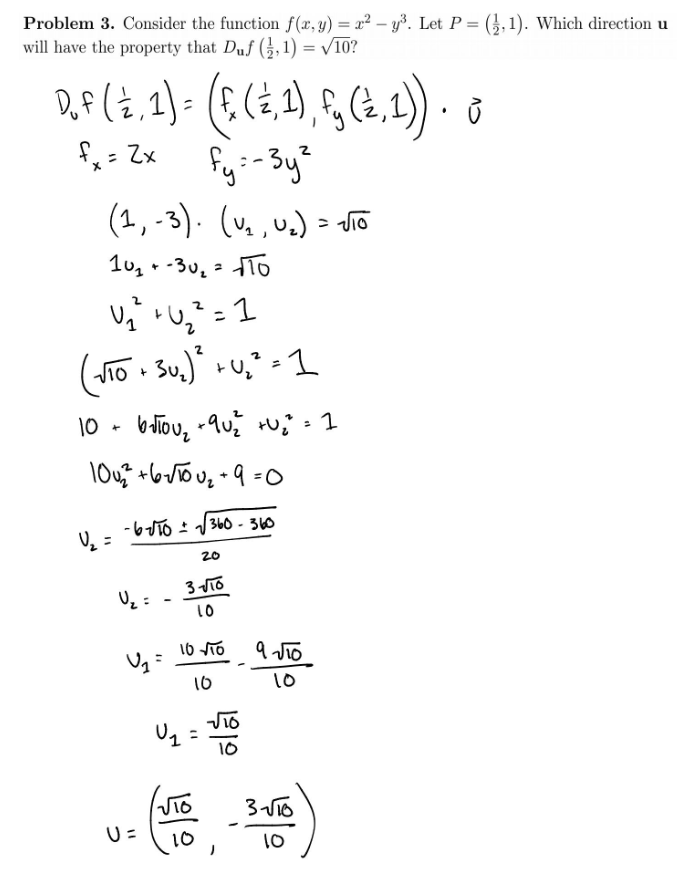 Problem 3. Consider the function f(x, y) = x² − y³. Let P = (1/2, 1). Which direction u
will have the property that D_u f (1/2, 1) = √10?
D_u f (1/2, 1) = (f_x (1/2, 1), f_y (1/2, 1)) · u⃗
f_x = 2x f_y = -3y²
(1, -3) · (u_1, u_2) = √10
1u_1 + -3u_2 = √10
u_1² + u_2² = 1
(√10 + 3u_2)² + u_2² = 1
10 + 6√10u_2 + 9u_2² + u_2² = 1
10u_2² + 6√10 u_2 + 9 = 0
u_2 = (-6√10 ± √(360 - 360))/20
u_2 = - 3√10/10
u_1 = 10√10/10 - 9√10/10
u_1 = √10/10
u = (√10/10, - 3√10/10)